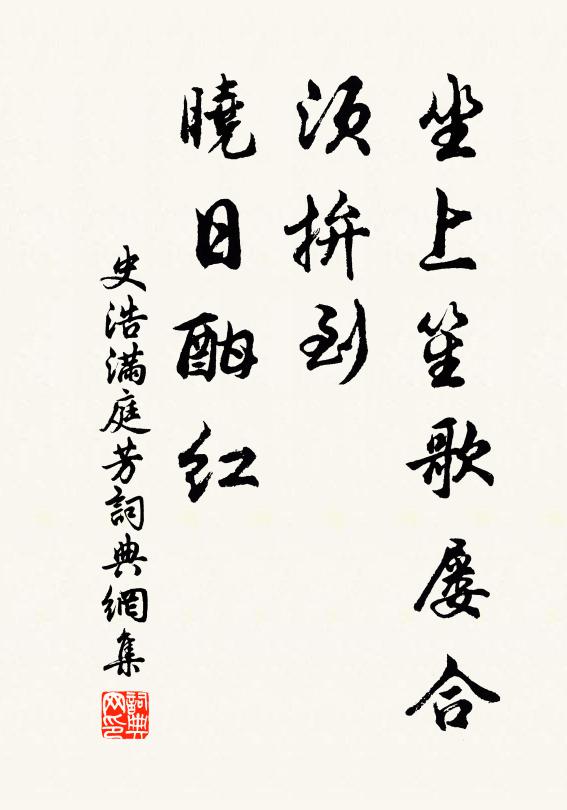 坐上笙歌屡合
须拚到
曉日酣红
史浩滿庭芳詞典網集
詞典网印